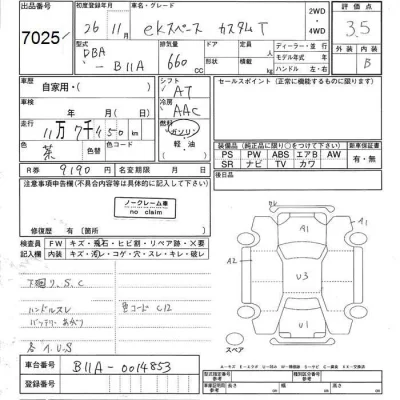 出品番号 初度登録年月 車名・グレード 2WD・4WD 評価点
7025 26年11月 eKスペース カスタムT 3.5
型式 排気量 ドア 形状 ディーラー・並行 外装 内装
DBA-B11A 660cc 定員 モデル年式 年 ハンドル 左・右 B
車歴 自家用・( ) シフト AT セールスポイント(正常に機能するものに限ります)
車検 年 月(月日) 冷房 AAC
走行 11万7千450km 燃料 ガソリン・軽油
色 茶 色替 カラーコード
装備品(純正品に限り○をつけて下さい) 新車保証書
PS PW ABS エアB AW 有・無
SR ナビ TV カワ
R券 9190円 名変期限 月 日
後日品
注意事項申告欄(不具合内容等は具体的に記入して下さい)
ノークレーム車
no claim
修復歴 有( )箇所
検査員記入欄 FW キズ・飛石・ヒビ割・リペア跡・×要
内装 キズ・汚レ・コゲ・穴・スレ・キレ・破レ
下廻り S.C
ハンドルスレ 色コードC12
各A.U.S
A1
A1
A2
U3
U1
スペア
車台番号 B11A-0014853
登録番号